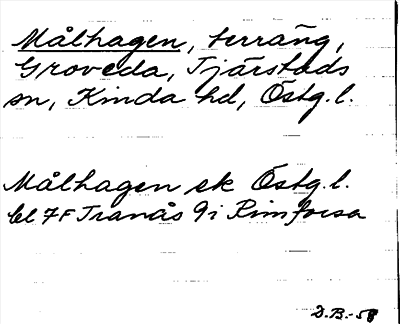 Målhagen, terräng,
Groveda, Tjärstads
sn, Kinda hd, Östg.l.
Målhagen ek Östg.l.
bl 7F Tranås 9i Rimforsa
D.B.-58